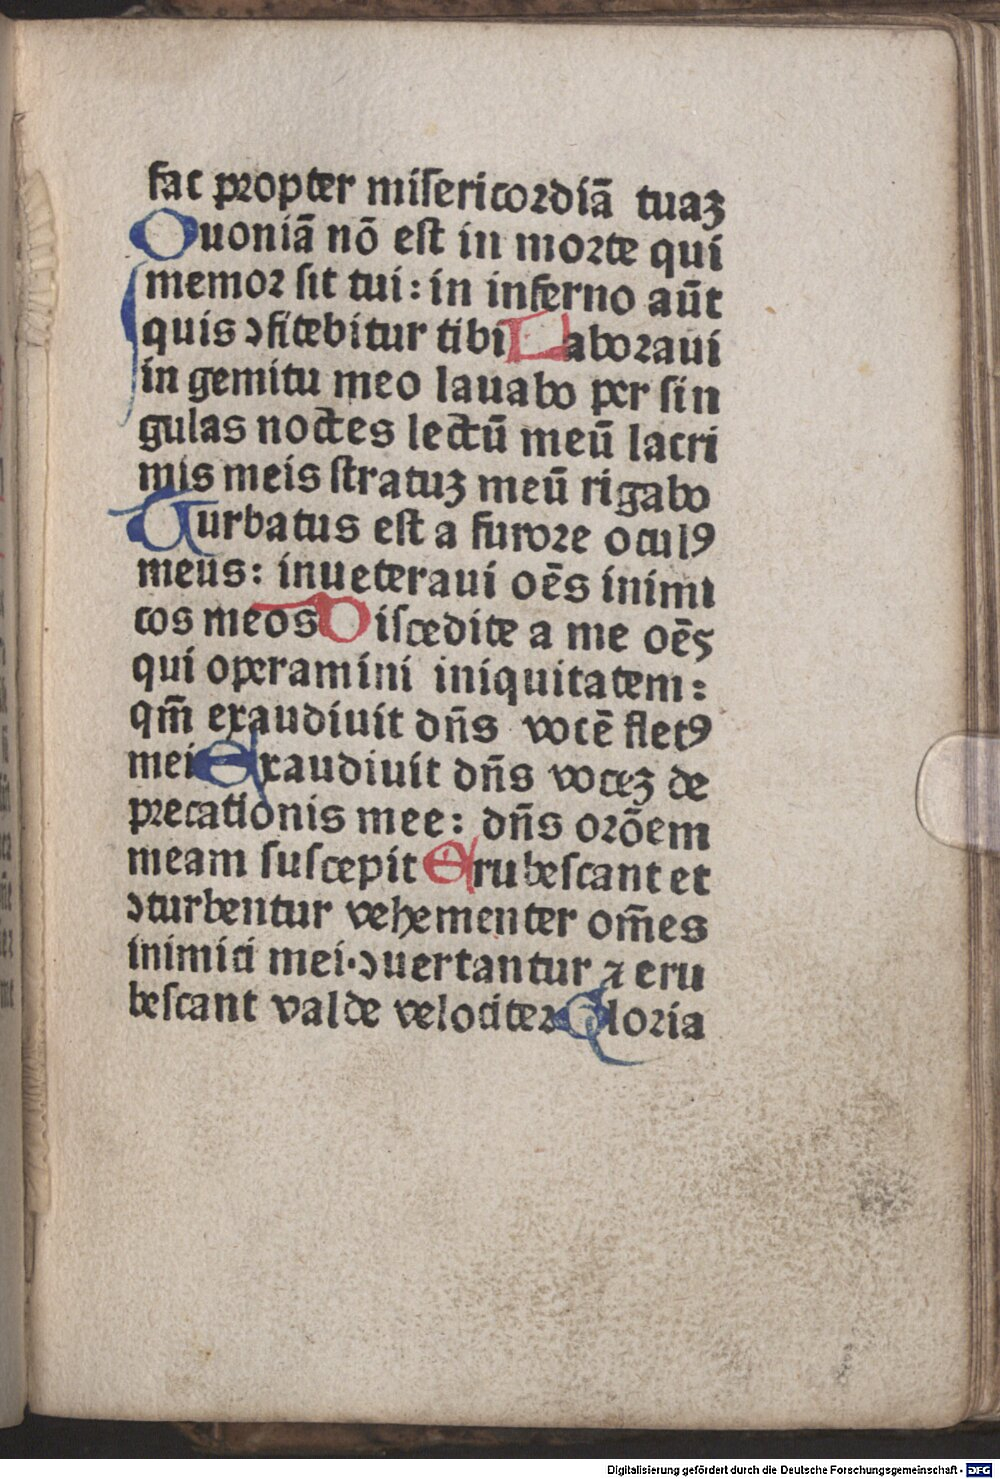 fac propter misericordiā tuaꝫ
Quoniā nō est in morte qui
memor sit tui: in inferno aūt
quis ↄfitebitur tibi Laboraui
in gemitu meo lauabo per sin
gulas noctes lectū meū lacri
mis meis stratuꝫ meū rigabo
Turbatus est a furore oculꝰ
meus: inueteraui oēs inimi
cos meos Discedite a me oēs
qui operamini iniquitatem:
qm̄ exaudiuit dn̄s vocē fletꝰ
mei Exaudiuit dn̄s voceꝫ de
precationis mee: dn̄s orōem
meam suscepit Erubescant et
ↄturbentur vehementer om̄es
inimici mei·ↄuertantur ⁊ eru
bescant valde velociter Gloria
Digitalisierung gefördert durch die Deutsche Forschungsgemeinschaft - DFG